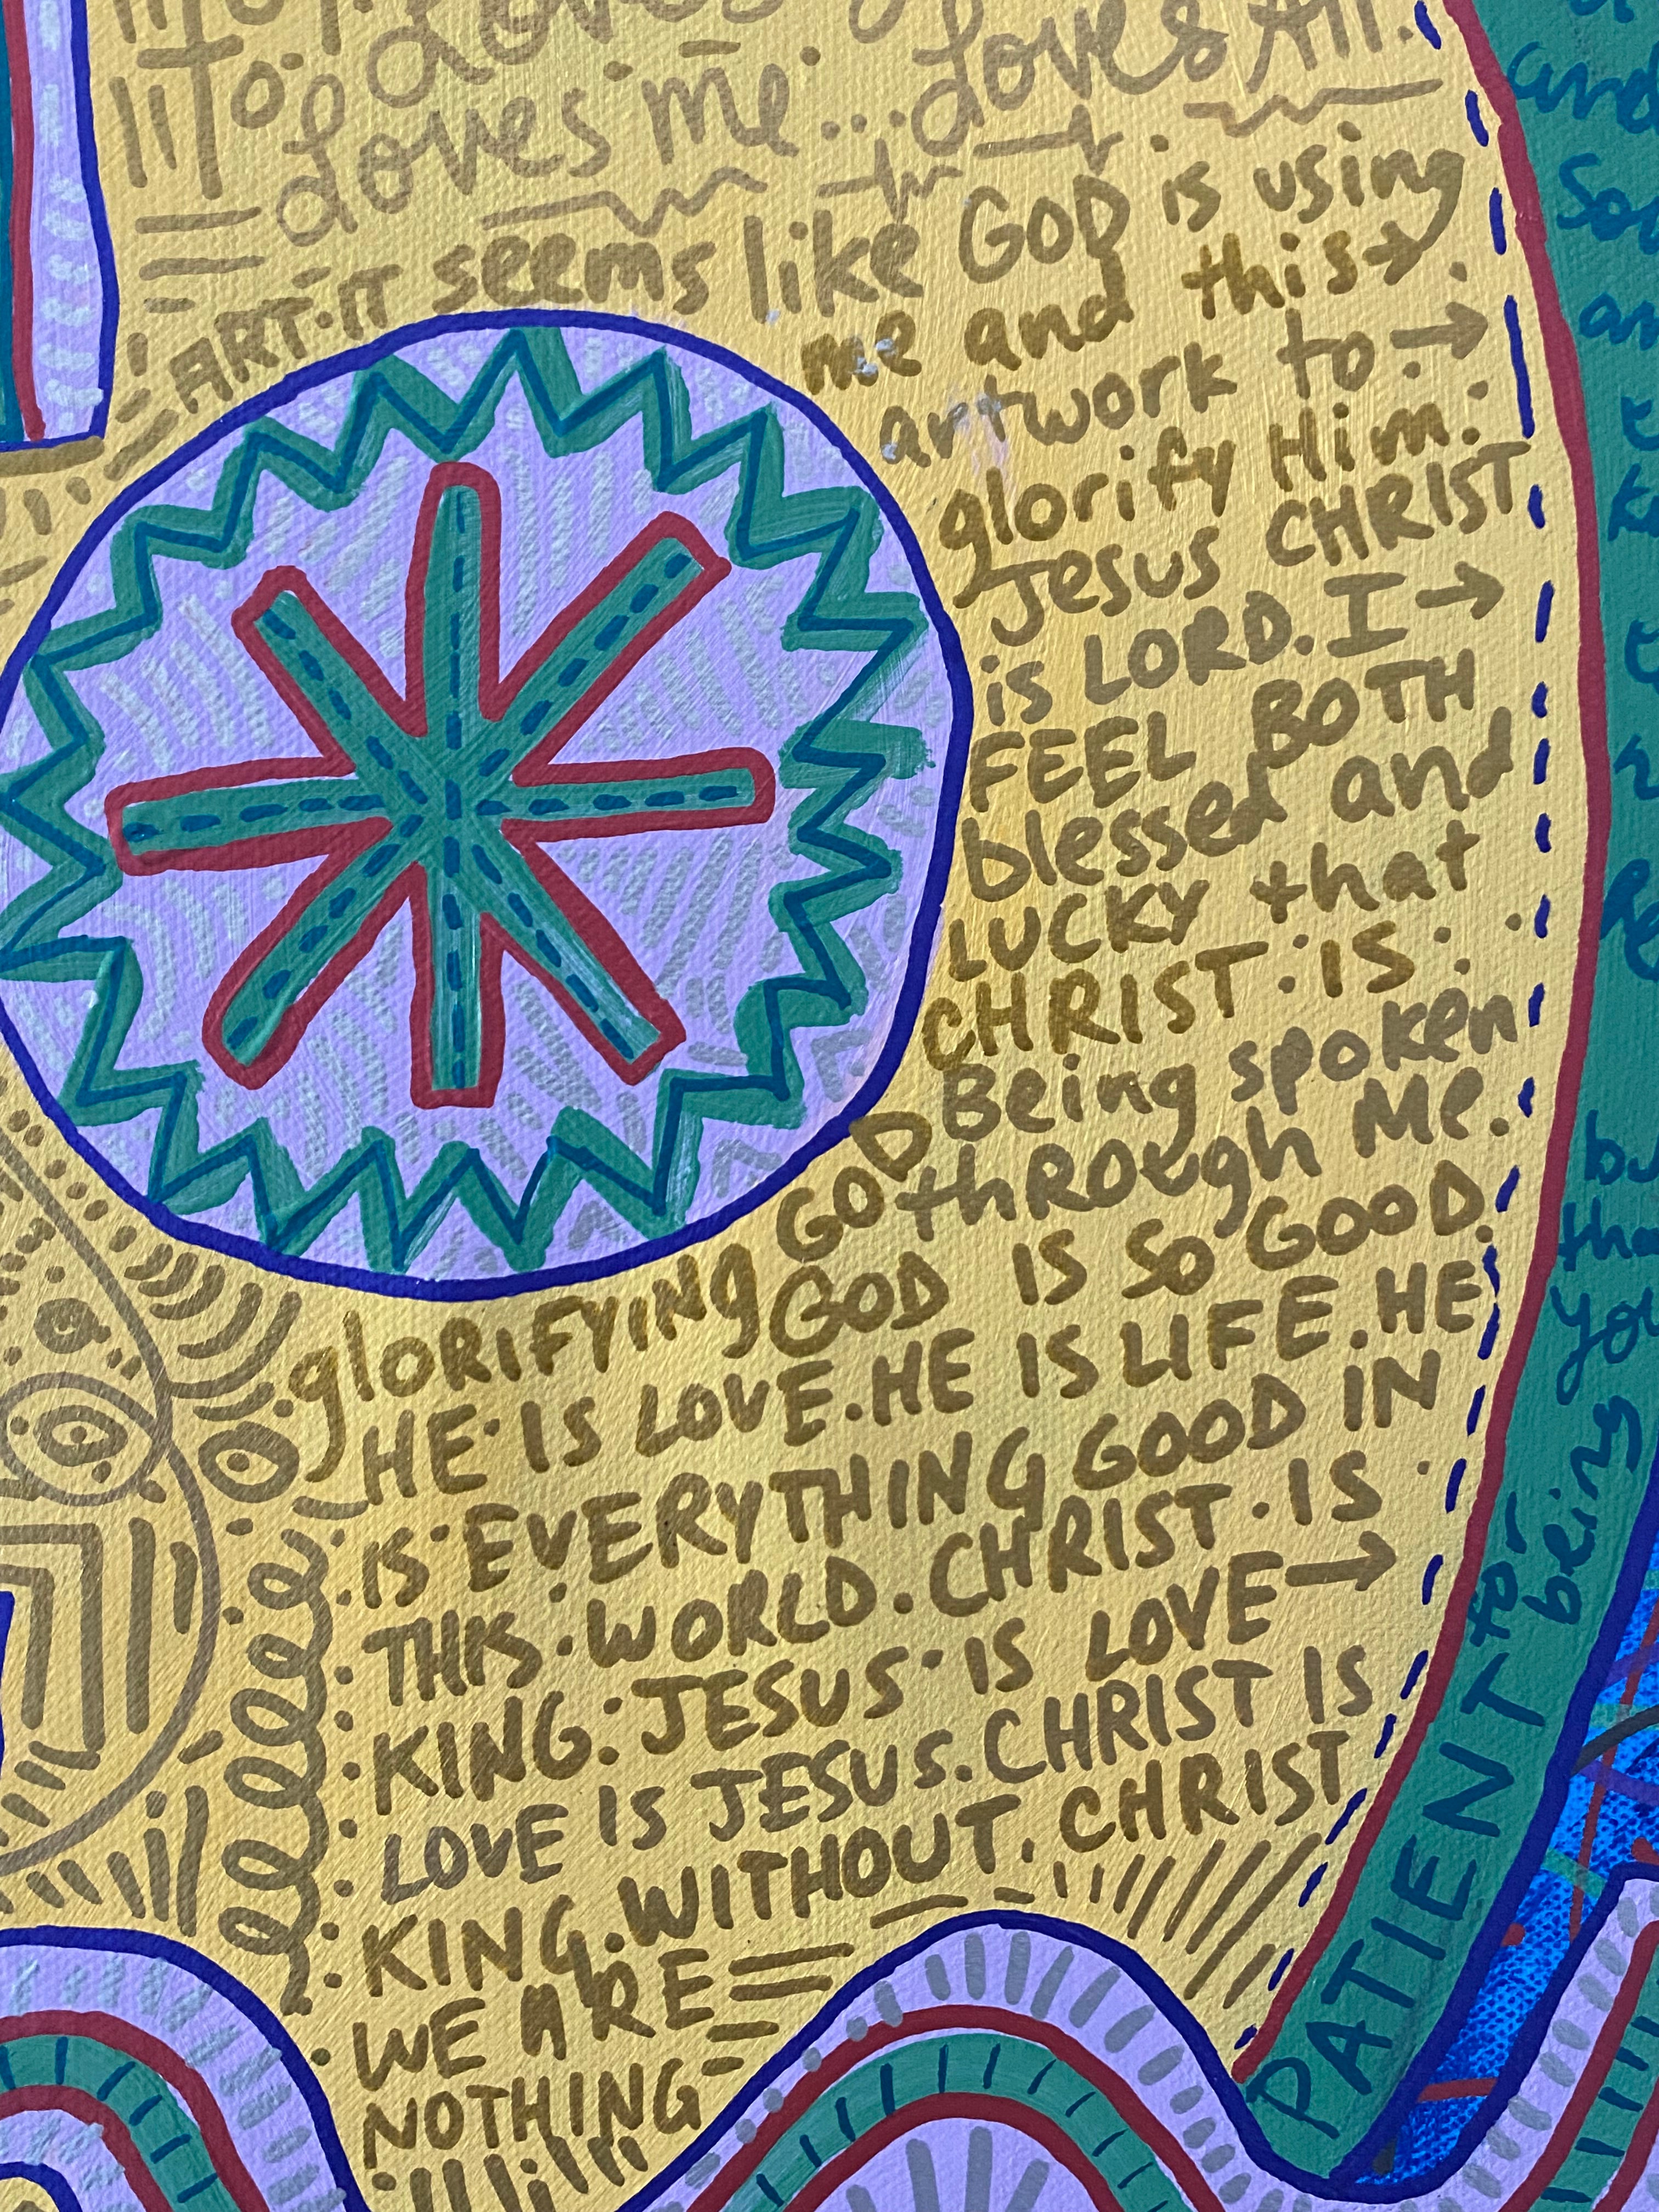 Loves
To.
Loves me... Loves All.
ART. IT seems like GOD is using
me and this→
artwork to→
glorify Him.
Jesus CHRIST
is LORD. I→
FEEL BOTH
blessed and
LUCKY that
CHRIST IS
Being spoken
through Me.
glORIFYINg GOD
GOD IS SO GOOD.
HE IS LOVE. HE IS LIFE. HE
IS EVERYTHING GOOD IN
THIS WORLD. CHRIST IS
KING. JESUS IS LOVE→
LOVE IS JESUS. CHRIST IS
KING. WITHOUT CHRIST
WE ARE
NOTHING
and
being
to
PATIENT